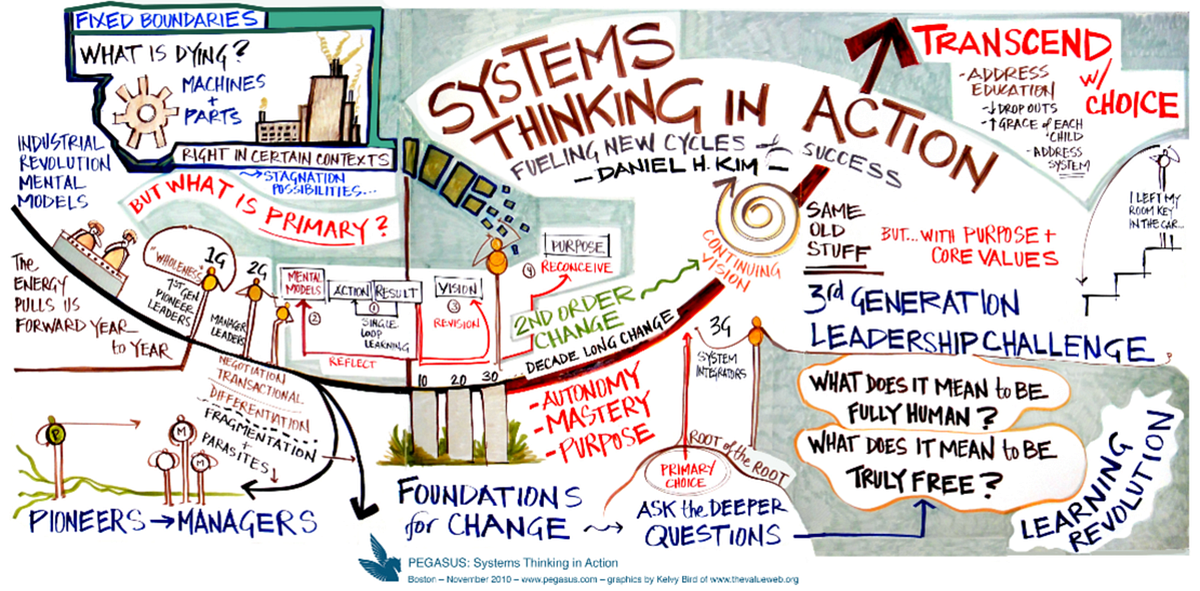 FIXED BOUNDARIES
WHAT IS DYING?
MACHINES
+
PARTS
RIGHT IN CERTAIN CONTEXTS
→ STAGNATION
POSSIBILITIES...
INDUSTRIAL
REVOLUTION
MENTAL
MODELS
BUT WHAT IS PRIMARY?
SYSTEMS
THINKING IN ACTION
FUELING NEW CYCLES of SUCCESS
- DANIEL H. KIM -
TRANSCEND
w/
CHOICE
- ADDRESS
EDUCATION
↓ DROP OUTS
↑ GRACE of EACH
CHILD
- ADDRESS
SYSTEM
I LEFT MY
ROOM KEY
IN THE CAR...
The
ENERGY
PULLS US
FORWARD YEAR
to YEAR
"WHOLENESS"
1G
1ST GEN
PIONEER
LEADERS
2G
MANAGER
LEADERS
MENTAL
MODELS
②
REFLECT
ACTION
RESULT
①
SINGLE
LOOP
LEARNING
VISION
③
REVISION
④
PURPOSE
RECONCEIVE
10 20 30
2ND ORDER
CHANGE
... DECADE LONG CHANGE
CONTINUING
VISION
SAME
OLD
STUFF
BUT... WITH PURPOSE +
CORE VALUES
3rd GENERATION
LEADERSHIP CHALLENGE
3G
SYSTEM
INTEGRATORS
NEGOTIATION
TRANSACTIONAL
DIFFERENTIATION
FRAGMENTATION
+
PARASITES
P
M
M
M
PIONEERS → MANAGERS
- AUTONOMY
- MASTERY
- PURPOSE
FOUNDATIONS
for CHANGE
ROOT of the ROOT
PRIMARY
CHOICE
ASK the DEEPER
QUESTIONS
WHAT DOES IT MEAN to BE
FULLY HUMAN?
WHAT DOES IT MEAN to BE
TRULY FREE?
LEARNING
REVOLUTION
PEGASUS: Systems Thinking in Action
Boston – November 2010 – www.pegasus.com – graphics by Kelvy Bird of www.thevalueweb.org